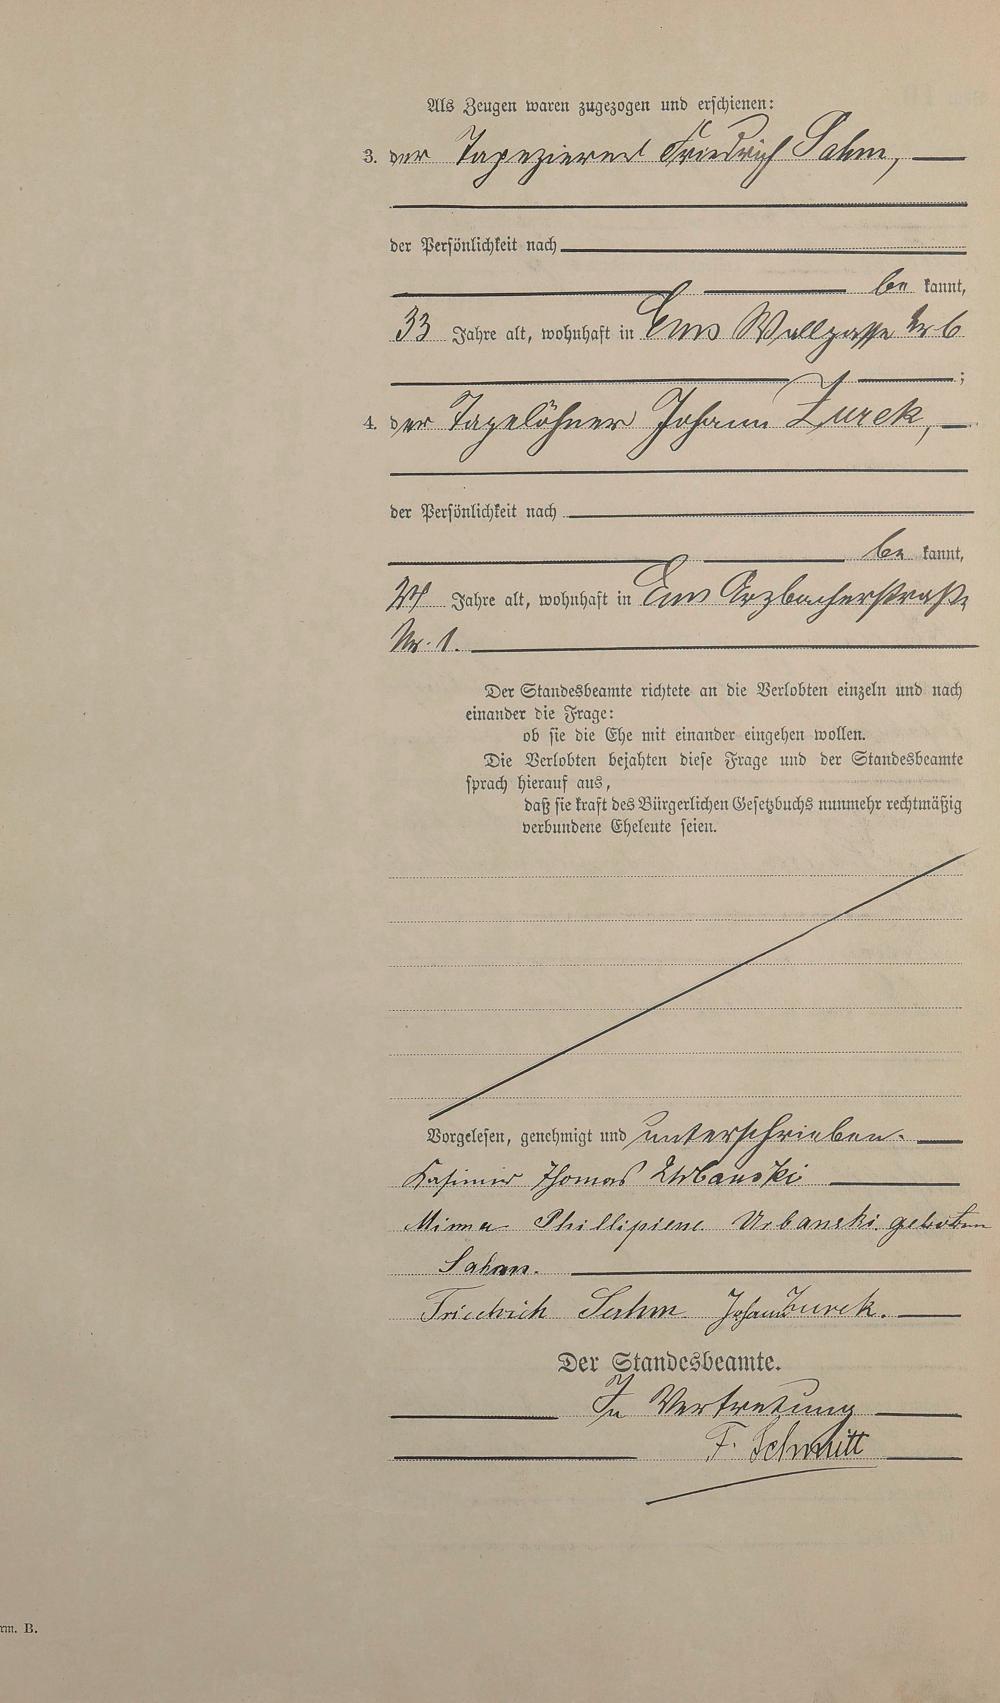 Als Zeugen waren zugezogen und erschienen:
3. der Tapezierer Friedrich Sahm,
der Persönlichkeit nach
be kannt,
33 Jahre alt, wohnhaft in Ems Wallgasse Nr 6
;
4. der Tagelöhner Johann Zurek,
der Persönlichkeit nach
be kannt,
24 Jahre alt, wohnhaft in Ems Arzbacherstraße
Nr. 1.
Der Standesbeamte richtete an die Verlobten einzeln und nach
einander die Frage:
ob sie die Ehe mit einander eingehen wollen.
Die Verlobten bejahten diese Frage und der Standesbeamte
sprach hierauf aus,
daß sie kraft des Bürgerlichen Gesetzbuchs nunmehr rechtmäßig
verbundene Eheleute seien.
Vorgelesen, genehmigt und unterschrieben.
Kasimir Thomas Urbanski
Minna Phillipiene Urbanski geboren
Sahm.
Friedrich Sahm Johann Zurek.
Der Standesbeamte.
In Vertretung
F. Schmitt
rm. B.